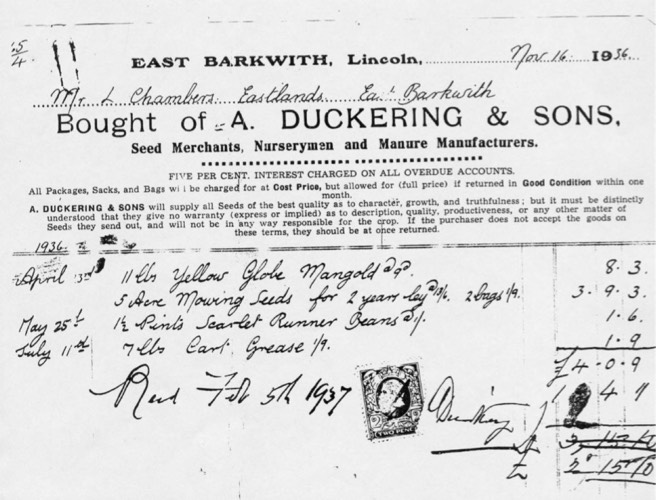 5/4
EAST BARKWITH, Lincoln, Nov 16 1936
Mr L Chambers Eastlands Eat Barkwith
Bought of A. DUCKERING & SONS,
Seed Merchants, Nurserymen and Manure Manufacturers.
FIVE PER CENT. INTEREST CHARGED ON ALL OVERDUE ACCOUNTS.
All Packages, Sacks, and Bags will be charged for at Cost Price, but allowed for (full price) if returned in Good Condition within one
month.
A. DUCKERING & SONS will supply all Seeds of the best quality as to character, growth, and truthfulness; but it must be distinctly
understood that they give no warranty (express or implied) as to description, quality, productiveness, or any other matter of
Seeds they send out, and will not be in any way responsible for the crop. If the purchaser does not accept the goods on
these terms, they should be at once returned.
1936
April 3rd 11 lbs Yellow Globe Mangold @ 9d 8. 3
5 Acre Mowing Seeds for 2 years ley @ 13/6. 2 bags 1/9. 3. 9. 3
May 25t 1½ Pints Scarlet Runner Beans @ 1/. 1. 6
July 11th 7 lbs Cart Grease 1/9. 1. 9
£4. 0. 9
Recd Feb 5th 1937 4 "
TWO PENCE
£ 15